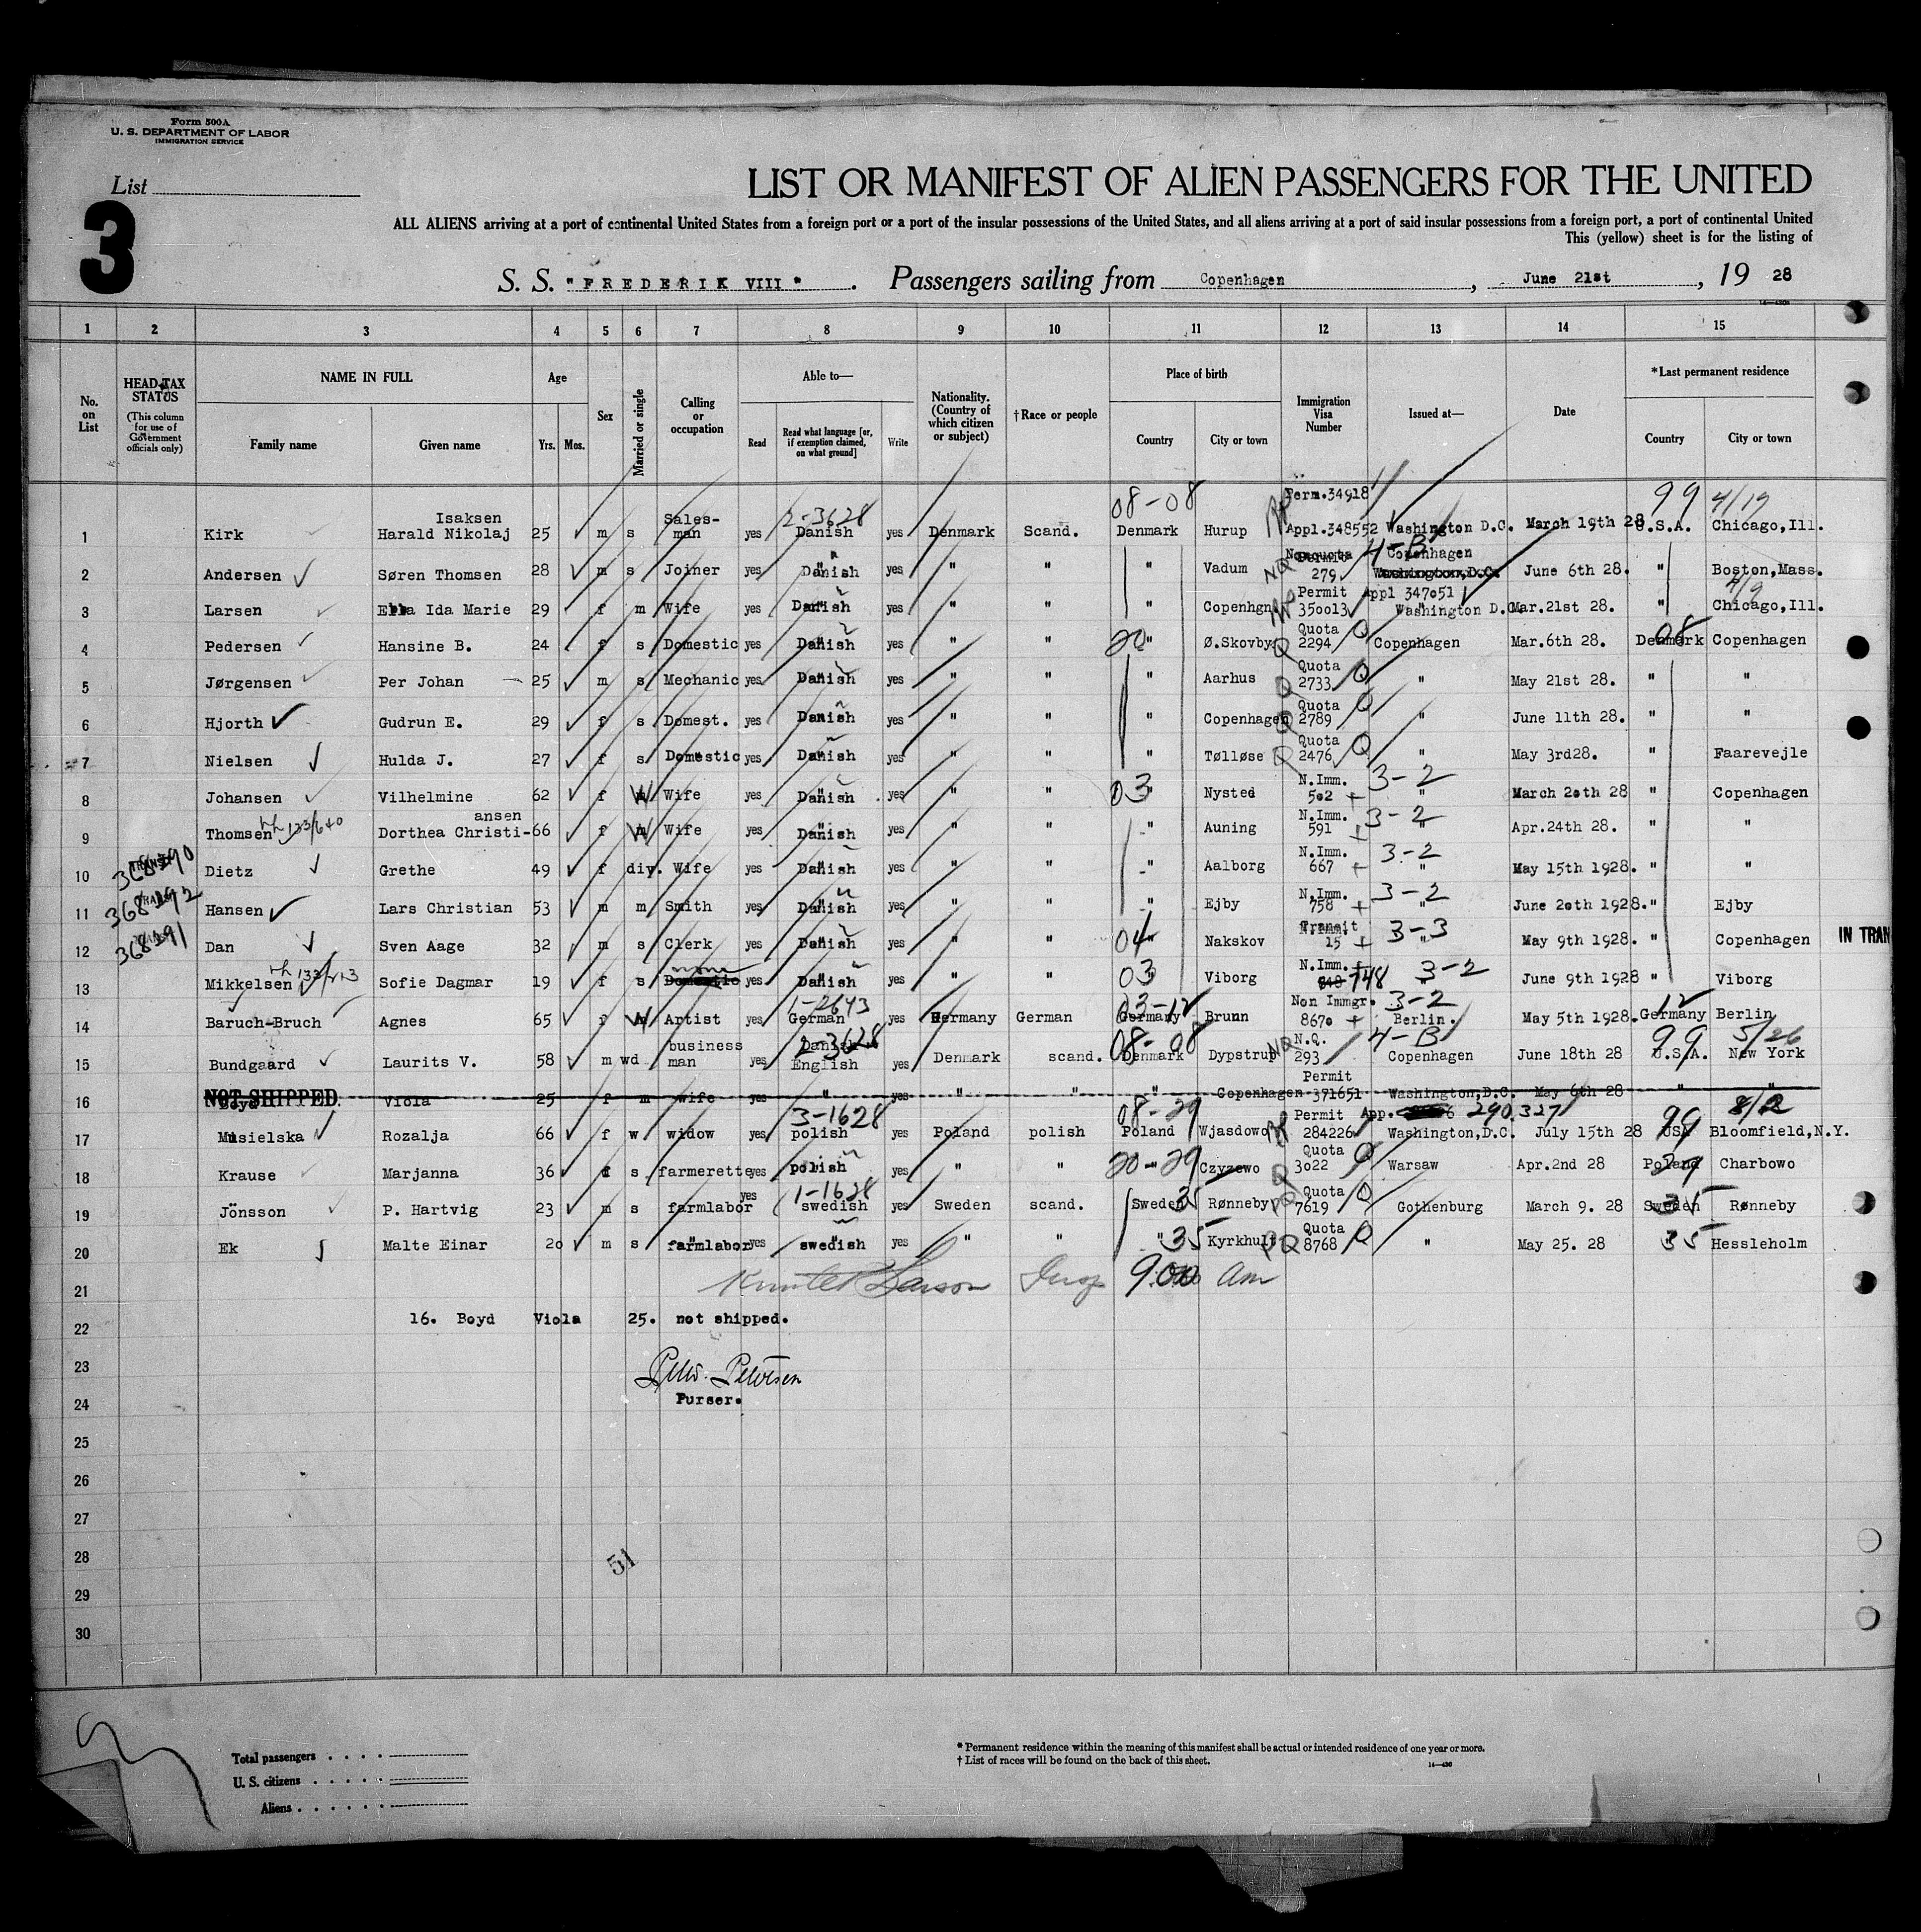 Form 500A
U. S. DEPARTMENT OF LABOR
IMMIGRATION SERVICE
List
3
LIST OR MANIFEST OF ALIEN PASSENGERS FOR THE UNITED
ALL ALIENS arriving at a port of continental United States from a foreign port or a port of the insular possessions of the United States, and all aliens arriving at a port of said insular possessions from a foreign port, a port of continental United
This (yellow) sheet is for the listing of
S. S. "FREDERIK VIII" . Passengers sailing from Copenhagen , June 21st , 19 28
14—430
1 2 3 4 5 6 7 8 9 10 11 12 13 14 15
No. on List
HEAD-TAX STATUS (This column for use of Government officials only)
NAME IN FULL Family name Given name
Age Yrs. Mos.
Sex
Married or single
Calling or occupation
Able to— Read Read what language [or, if exemption claimed, on what ground] Write
Nationality. (Country of which citizen or subject)
†Race or people
Place of birth Country City or town
Immigration Visa Number
Issued at—
Date
*Last permanent residence Country City or town
08-08 Perm.34918 99 4/19
Isaksen Sales- 2-3628
1 Kirk Harald Nikolaj 25 m s man yes Danish yes Denmark Scand. Denmark Hurup Appl.348552 Washington D.C. March 19th 28 U.S.A. Chicago,Ill.
Nonquota 4-B Copenhagen
2 Andersen Søren Thomsen 28 m s Joiner yes Danish yes " " " Vadum NQ 279 Washington,D.C. June 6th 28. " Boston,Mass.
Permit Appl 347051 4/9
3 Larsen Ella Ida Marie 29 f m Wife yes Danish yes " " " Copenhgn 350013 Washington D.C. Mar.21st 28. " Chicago,Ill.
Quota Q 08
4 Pedersen Hansine B. 24 f s Domestic yes Danish yes " " 20 " Ø.Skovby Q 2294 Copenhagen Mar.6th 28. Denmark Copenhagen
Quota Q
5 Jørgensen Per Johan 25 m s Mechanic yes Danish yes " " " Aarhus Q 2733 " May 21st 28. " "
Quota Q
6 Hjorth Gudrun E. 29 f s Domest. yes Danish yes " " " Copenhagen Q 2789 " June 11th 28. " "
Quota Q
7 Nielsen Hulda J. 27 f s Domestic yes Danish yes " " " Tølløse Q 2476 " May 3rd28. " Faarevejle
N.Imm. 3-2
8 Johansen Vilhelmine 62 f W Wife yes Danish yes " " 03 " Nysted 502 + " March 20th 28 " Copenhagen
ansen N.Imm. 3-2
9 Thomsen 133/640 Dorthea Christi- 66 f W Wife yes Danish yes " " " Auning 591 + " Apr.24th 28. " "
N.Imm. 3-2
10 Dietz Grethe 49 f div. Wife yes Danish yes " " " Aalborg 667 + " May 15th 1928. " "
368292 N.Imm. 3-2
11 Hansen Lars Christian 53 m m Smith yes Danish yes " " " Ejby 758 + " June 20th 1928. " Ejby
368291 Transit 3-3
12 Dan Sven Aage 32 m s Clerk yes Danish yes " " 04 " Nakskov 15 + " May 9th 1928. " Copenhagen IN TRAN
none N.Imm. 3-2
13 Mikkelsen Sofie Dagmar 19 f s Domestic yes Danish yes " " 03 " Viborg 748 " June 9th 1928 " Viborg
1-2643 03-12 Non Immgr. 3-2 12
14 Baruch-Bruch Agnes 65 f W Artist yes German yes Germany German Germany Brunn 8670 + Berlin. May 5th 1928. Germany Berlin
business Danish 2-3628 08-08 N.Q. 4-B 99 5/26
15 Bundgaard Laurits V. 58 m wd man yes English yes Denmark scand. Denmark Dypstrup NQ 293 Copenhagen June 18th 28 U.S.A. New York
Permit
16 NOT SHIPPED. Boyd Viola 25 f m wife yes " yes " " " Copenhagen 371651 Washington,D.C. May 6th 28 " "
3-1628 08-29 Permit App. 290.327 99 8/2
17 Musielska Rozalja 66 f w widow yes polish yes Poland polish Poland Wjasdowo 284226 Washington,D.C. July 15th 28 USA Bloomfield,N.Y.
Quota Q
18 Krause Marjanna 36 f s farmerette yes polish yes " " 20-29 " Czyzewo Q 3022 Warsaw Apr.2nd 28 Poland 29 Charbowo
yes 1-1628 Quota Q
19 Jönsson P. Hartvig 23 m s farmlabor swedish yes Sweden scand. Sweden 35 Rønneby 7619 Gothenburg March 9. 28 Sweden 35 Rønneby
Quota Q
20 Ek Malte Einar 20 m s farmlabor yes swedish yes " " " 35 Kyrkhult 8768 " May 25. 28 35 Hessleholm
21 Larson Insp 9:00 Am
22 16. Boyd Viola 25. not shipped.
23 Petersen
24 Purser.
25
26
27
28 51
29
30
Total passengers
U. S. citizens
Aliens
* Permanent residence within the meaning of this manifest shall be actual or intended residence of one year or more.
† List of races will be found on the back of this sheet.
14—430